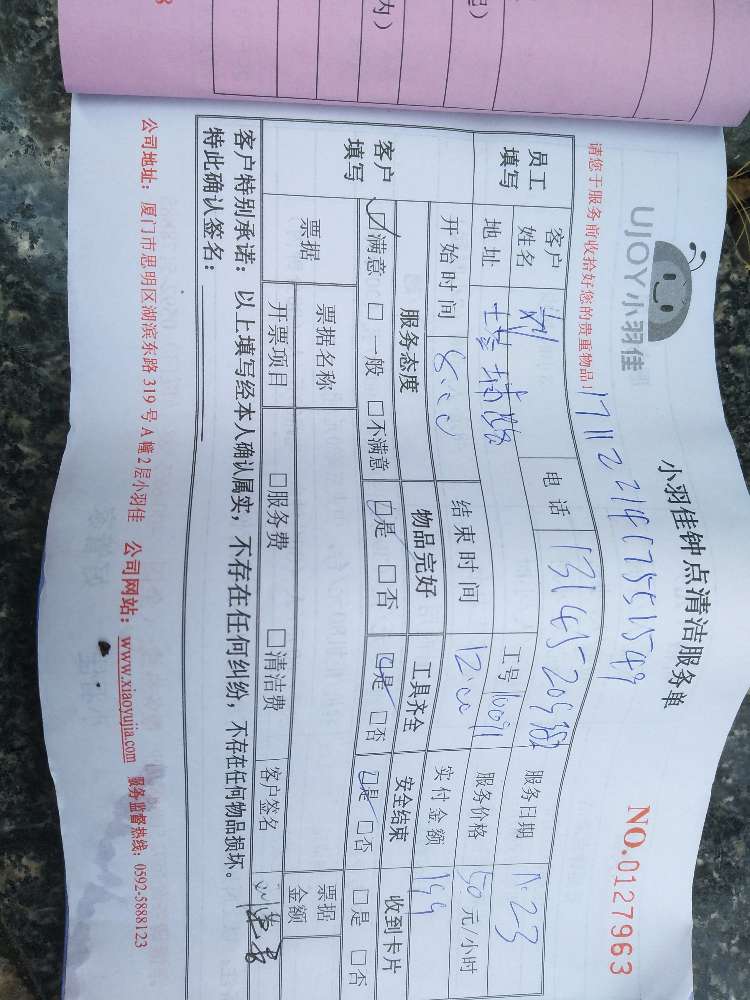 内）
UJOY小羽佳
小羽佳钟点清洁服务单
NO.0127963
请您于服务前收拾好您的贵重物品！
员工填写
客户姓名 刘 电话 服务日期
地址 工号 服务价格 50 元/小时
开始时间 8:00 结束时间 12:00 实付金额 199
客户填写
服务态度 物品完好 工具齐全 安全结束 收到卡片
☑满意 □一般 □不满意 ☑是 □否 ☑是 □否 ☑是 □否 □是 □否
票据 票据名称 票据金额
开票项目 □服务费 □清洁费 客户签名
客户特别承诺：以上填写经本人确认属实，不存在任何纠纷，不存在任何物品损坏。
特此确认签名：
公司地址：厦门市思明区湖滨东路 319 号 A 幢 2 层小羽佳 公司网站：www.xiaoyujia.com 服务监督热线：0592-5888123